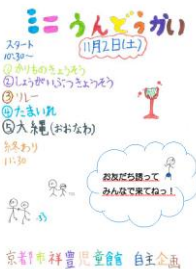 ミニうんどうかい
11月2日(土)
スタート
10:30~
①かりものきょうそう
②しょうがいぶつきょうそう
③リレー
④たまいれ
⑤大縄(おおなわ)
終わり
11:30
お友だち誘って
みんなで来てねっ!
京都市祥豊児童館 自主企画